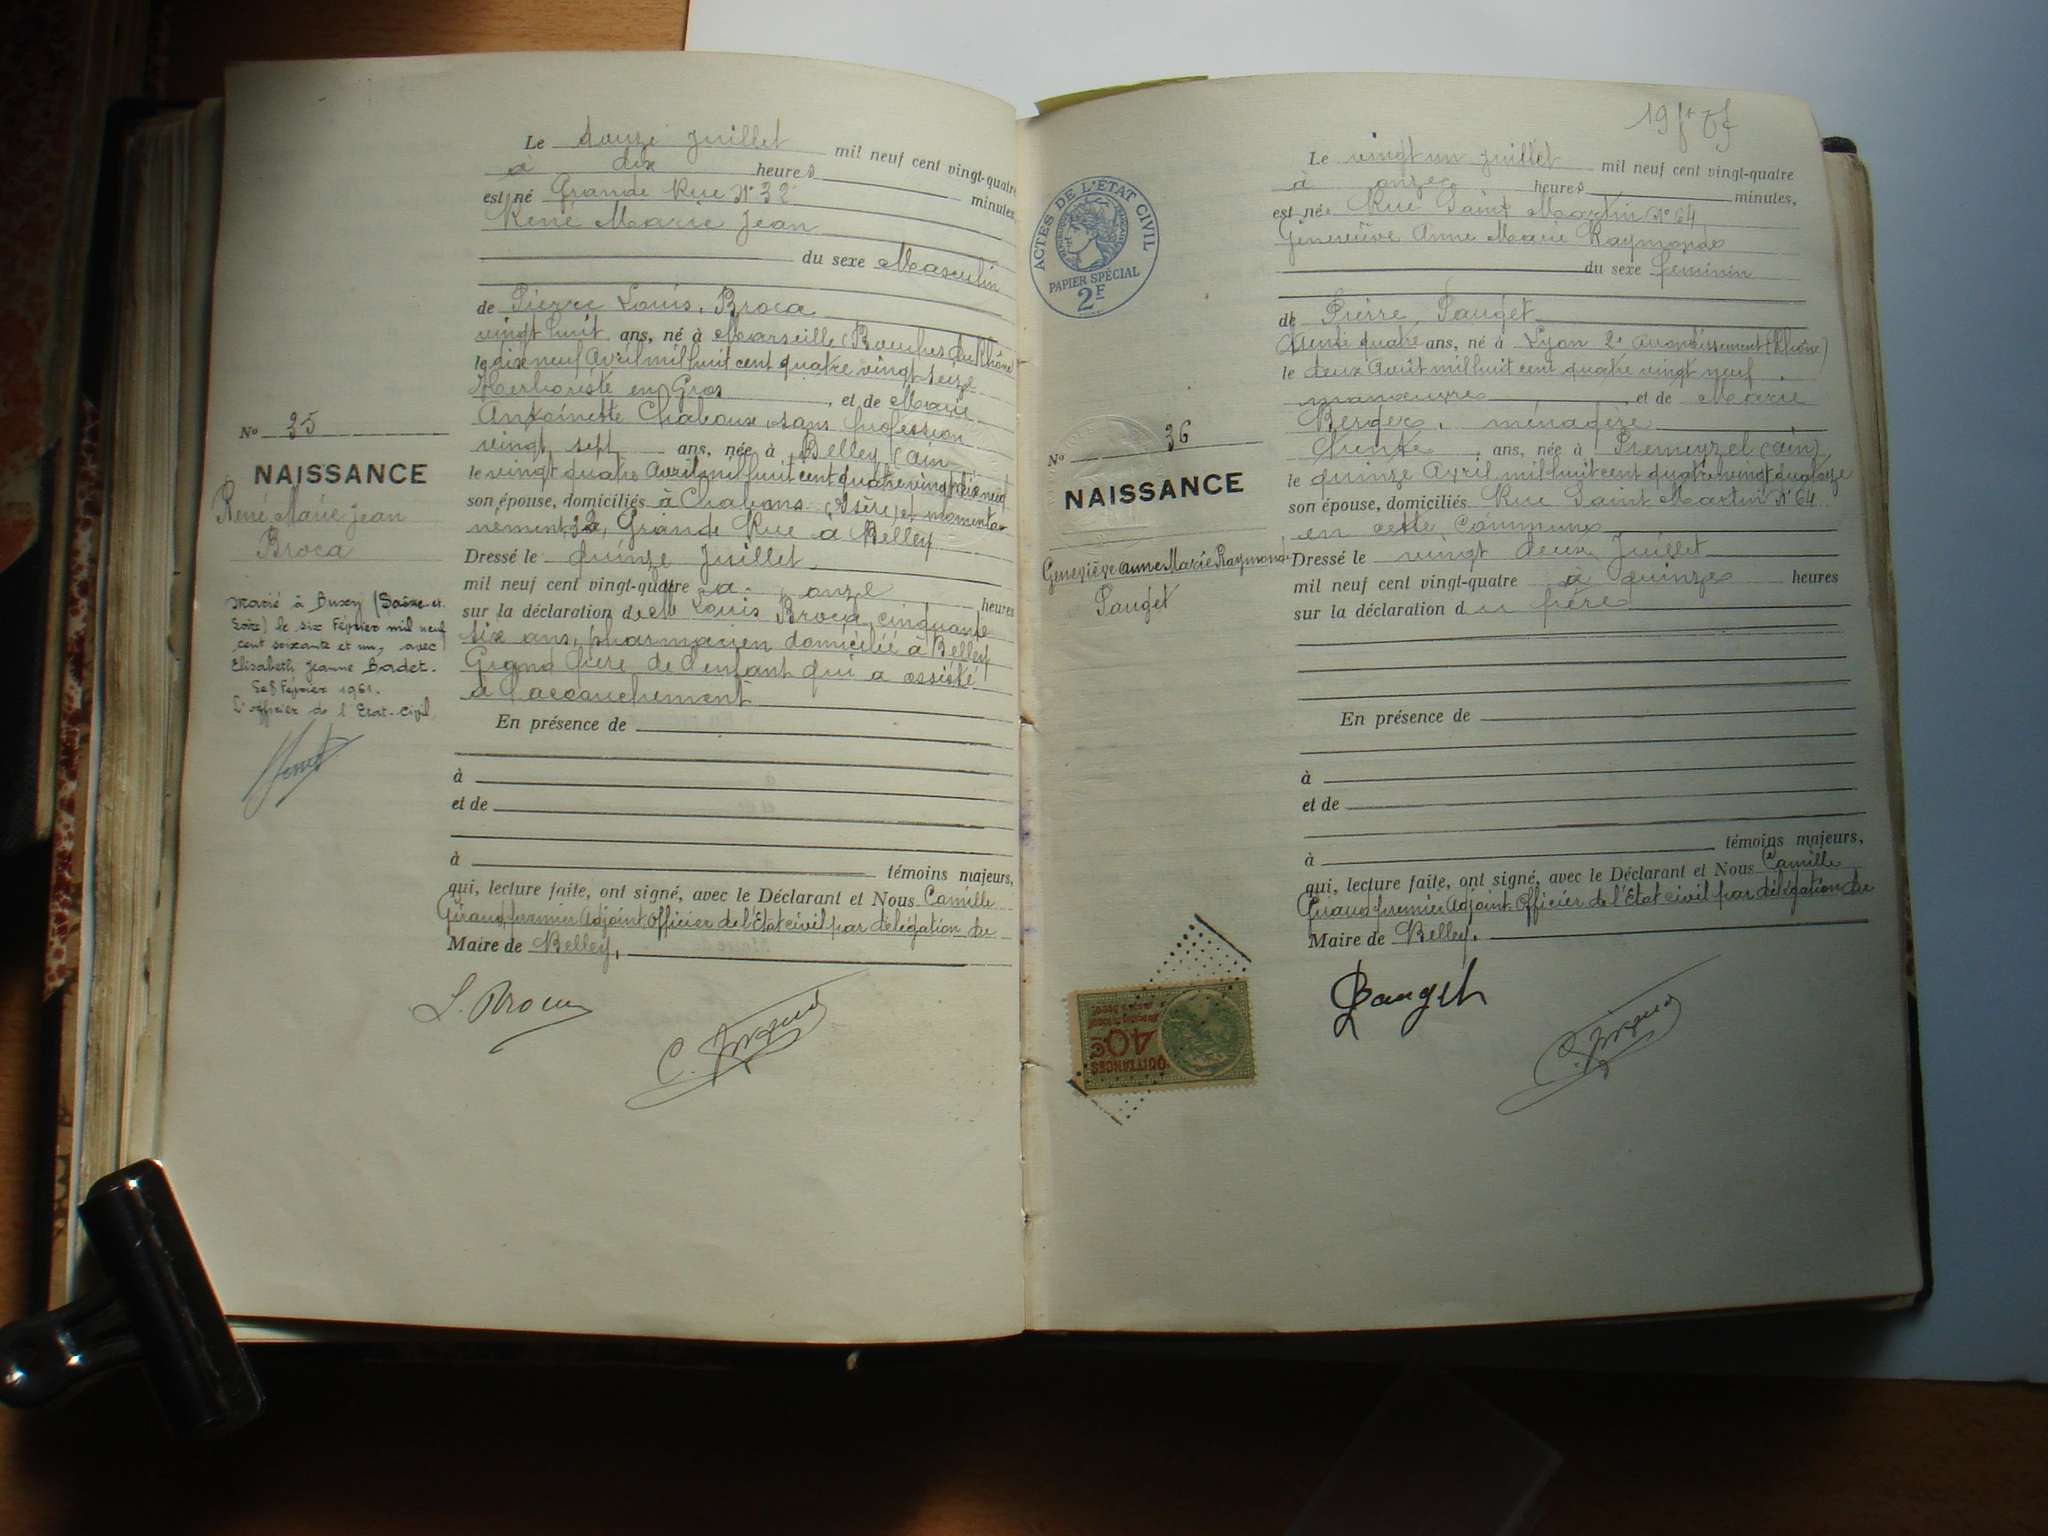 Le douze juillet mil neuf cent vingt-quatre
à dix heures minutes,
est né Grande Rue N° 32
René Marie Jean
du sexe Masculin
de Pierre Louis Broca
vingt huit ans, né à Marseille (Bouches du Rhône)
le dix neuf Avril mil huit cent quatre vingt seize
Herboriste en Gros, et de Marie
Antoinette Chaboux, sans profession
vingt sept ans, née à Belley (Ain
le vingt quatre Avril mil huit cent quatre vingt dix neuf
son épouse, domiciliés à Chabons (Isère) et momenta-
nément 32, Grande Rue à Belley
Dressé le quinze Juillet
mil neuf cent vingt-quatre à onze heures
sur la déclaration de Louis Broca, cinquante
six ans, pharmacien domicilié à Belley
Grand Père de l'enfant qui a assisté
à l'accouchement
En présence de
à
et de
à témoins majeurs,
qui, lecture faite, ont signé, avec le Déclarant et Nous Camille
Giraud premier Adjoint Officier de l'Etat civil par délégation du
Maire de Belley.
L. Broca
C. Giraud
N° 35
NAISSANCE
René Marie Jean
Broca
Marié à Buxy (Saône et
Loire) le six Février mil neuf
cent soixante et un, avec
Elisabeth Jeanne Badet.
Le 8 Février 1961.
L'officier de l'Etat-Civil,
19
Le vingt un juillet mil neuf cent vingt-quatre
à onze heures minutes,
est née Rue Saint Martin N° 64
Geneviève Anne Marie Raymonde
du sexe féminin
de Pierre Pauget
trente quatre ans, né à Lyon 2e arrondissement (Rhône)
le deux Août mil huit cent quatre vingt neuf
manœuvre, et de Marie
Berger, ménagère
trente ans, née à Premeyzel (Ain)
le quinze Avril mil huit cent quatre vingt quatorze
son épouse, domiciliés Rue Saint Martin N° 64
en cette Commune
Dressé le vingt deux Juillet
mil neuf cent vingt-quatre à quinze heures
sur la déclaration du père
En présence de
à
et de
à témoins majeurs,
qui, lecture faite, ont signé, avec le Déclarant et Nous Camille
Giraud premier Adjoint Officier de l'Etat civil par délégation du
Maire de Belley.
Pauget
C. Giraud
ACTES DE L'ÉTAT CIVIL
RÉPUBLIQUE FRANÇAISE
PAPIER SPÉCIAL
2F
N° 36
NAISSANCE
Geneviève Anne Marie Raymonde
Pauget
QUITTANCES
40c